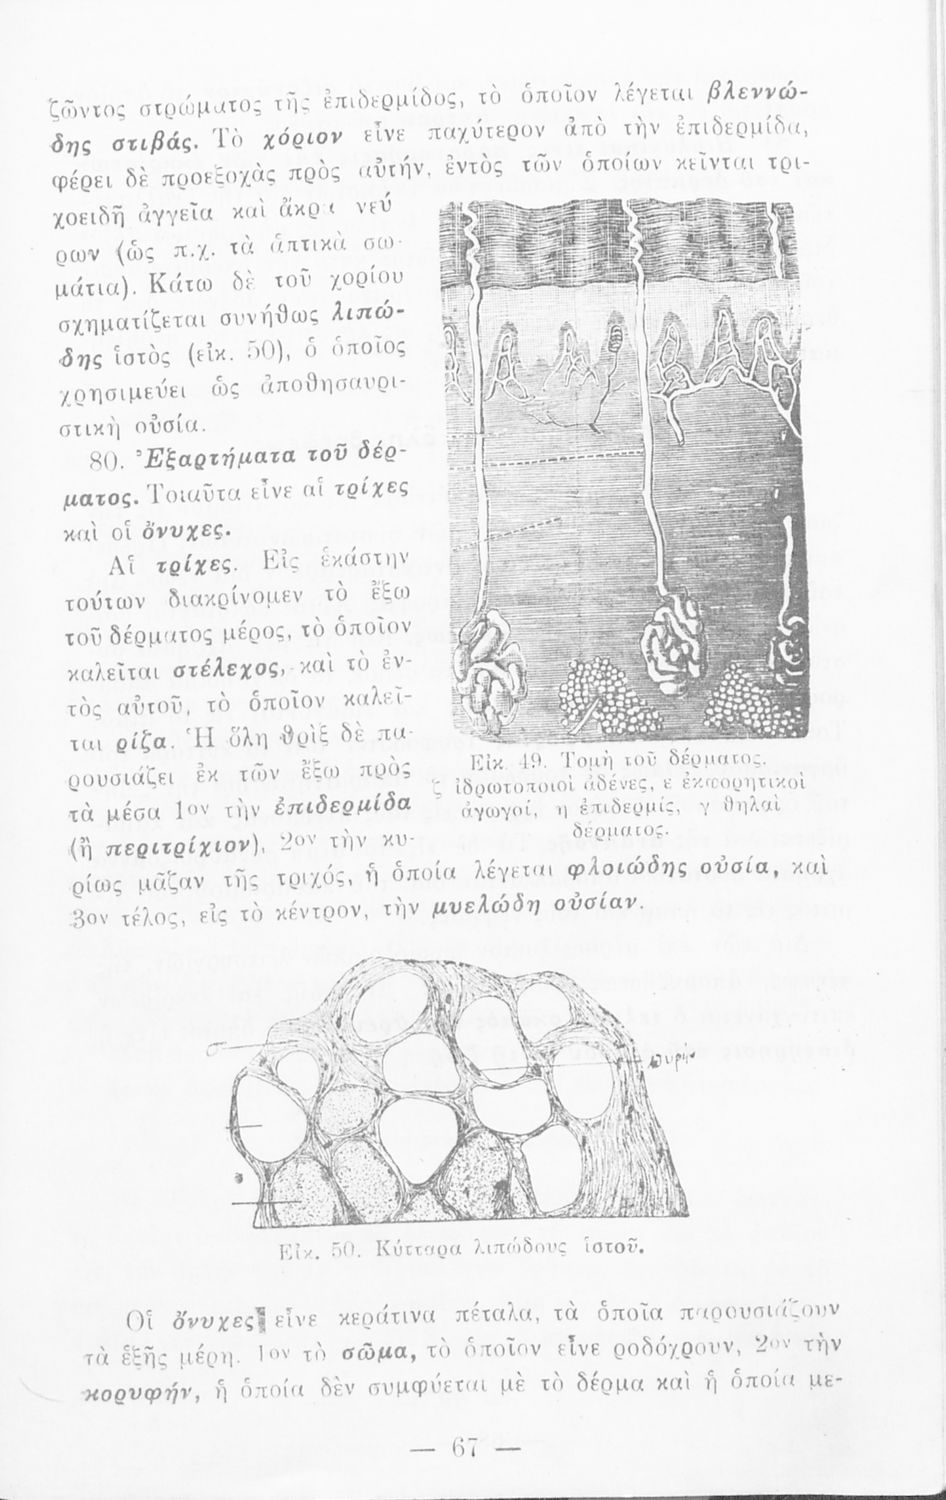 ζῶντος στρώματος τῆς ἐπιδερμίδος, τὸ ὁποῖον λέγεται βλεννώ-
δης στιβάς. Τὸ χόριον εἶνε παχύτερον ἀπὸ τὴν ἐπιδερμίδα,
φέρει δὲ προεξοχὰς πρὸς αὐτήν, ἐντὸς τῶν ὁποίων κεῖνται τρι-
χοειδῆ ἀγγεῖα καὶ ἄκρα νεύ
ρων (ὡς π.χ. τὰ ἁπτικὰ σω-
μάτια). Κάτω δὲ τοῦ χορίου
σχηματίζεται συνήθως λιπώ-
δης ἱστὸς (εἰκ. 50), ὁ ὁποῖος
χρησιμεύει ὡς ἀποθησαυρι-
στικὴ οὐσία.
80. Ἐξαρτήματα τοῦ δέρ-
ματος. Τοιαῦτα εἶνε αἱ τρίχες
καὶ οἱ ὄνυχες.
Αἱ τρίχες. Εἰς ἑκάστην
τούτων διακρίνομεν τὸ ἔξω
τοῦ δέρματος μέρος, τὸ ὁποῖον
καλεῖται στέλεχος, καὶ τὸ ἐν-
τὸς αὐτοῦ, τὸ ὁποῖον καλεῖ-
ται ρίζα. Ἡ ὅλη θρὶξ δὲ πα-
ρουσιάζει ἐκ τῶν ἔξω πρὸς
τὰ μέσα 1ον τὴν ἐπιδερμίδα
(ἢ περιτρίχιον), 2ον τὴν κυ-
ρίως μᾶζαν τῆς τριχός, ἡ ὁποία λέγεται φλοιώδης οὐσία, καὶ
3ον τέλος, εἰς τὸ κέντρον, τὴν μυελώδη οὐσίαν.
Εἰκ. 49. Τομὴ τοῦ δέρματος.
ζ ἱδρωτοποιοὶ ἀδένες, ε ἐκφορητικοὶ
ἀγωγοί, η ἐπιδερμίς, γ θηλαὶ
δέρματος.
σ
Εἰκ. 50. Κύτταρα λιπώδους ἱστοῦ.
Οἱ ὄνυχες εἶνε κεράτινα πέταλα, τὰ ὁποῖα παρουσιάζουν
τὰ ἑξῆς μέρη. 1ον τὸ σῶμα, τὸ ὁποῖον εἶνε ροδόχρουν, 2ον τὴν
κορυφήν, ἡ ὁποία δὲν συμφύεται μὲ τὸ δέρμα καὶ ἡ ὁποία με-
— 67 —